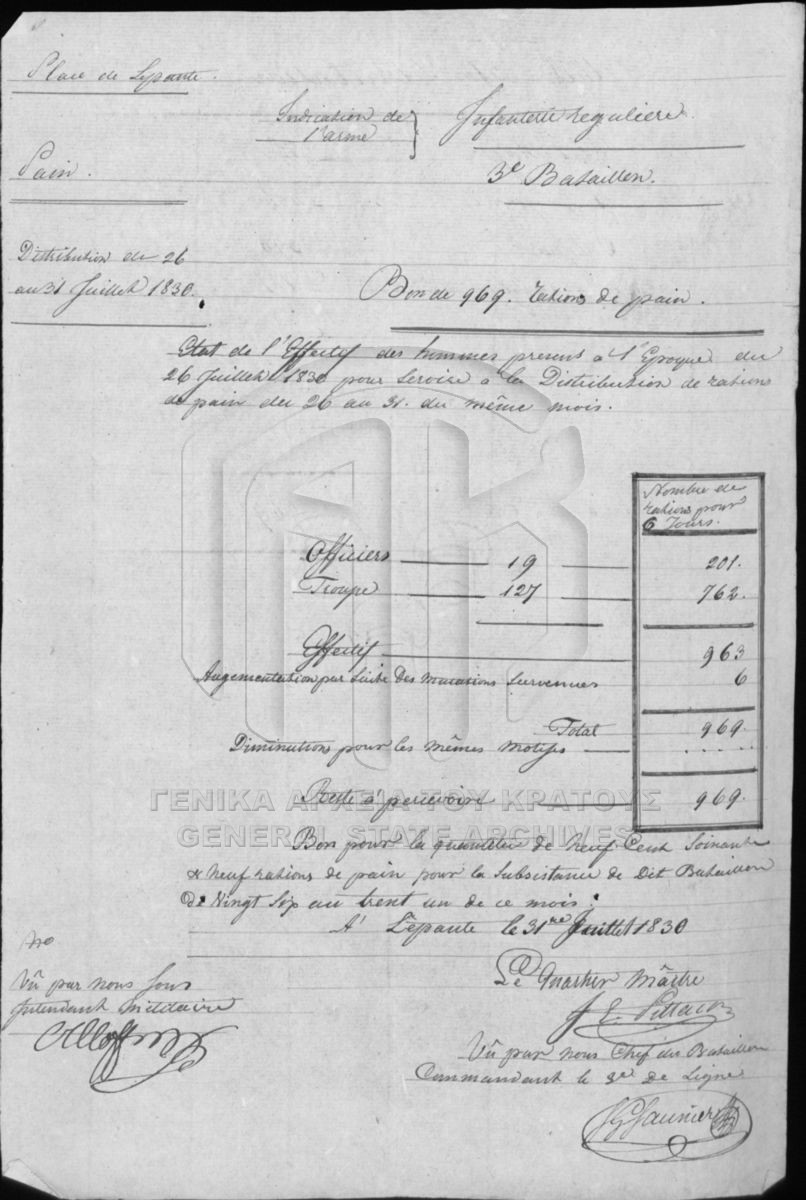 Place de Lepante.
Indication de
l'arme } Infanterie reguliere.
Pain.
3e Bataillon.
Distribution du 26
au 31 Juillet 1830.
Bon de 969. rations de pain.
Etat de l'Effectif des hommes presens à l'Epoque du
26 Juillet 1830 pour Servire à la Distribution de rations
de pain du 26 au 31. du même mois.
Nombre de
rations pour
6 Jours.
Officiers 19 201.
Troupe 127 762.
Effectif 963
Augementation par Suite Des mutations Survenues 6
Total 969.
Diminution pour les mêmes motifs .....
Reste à percevoire 969.
ΓΕΝΙΚΑ ΑΡΧΕΙΑ ΤΟΥ ΚΡΑΤΟΥΣ
GENERAL STATE ARCHIVES
Bon pour la quantitée de Neuf Cent Soixante
& Neuf rations de pain pour la Subsistance de Dit Bataillon
De Vingt Six au trent un de ce mois:
A' Lepante le 31me Juillet 1830
Vû par nous Sous
Intendant militaire
Le Quartier Maître
Vû par nous Chef du Bataillon
Commandant le 3me de Ligne